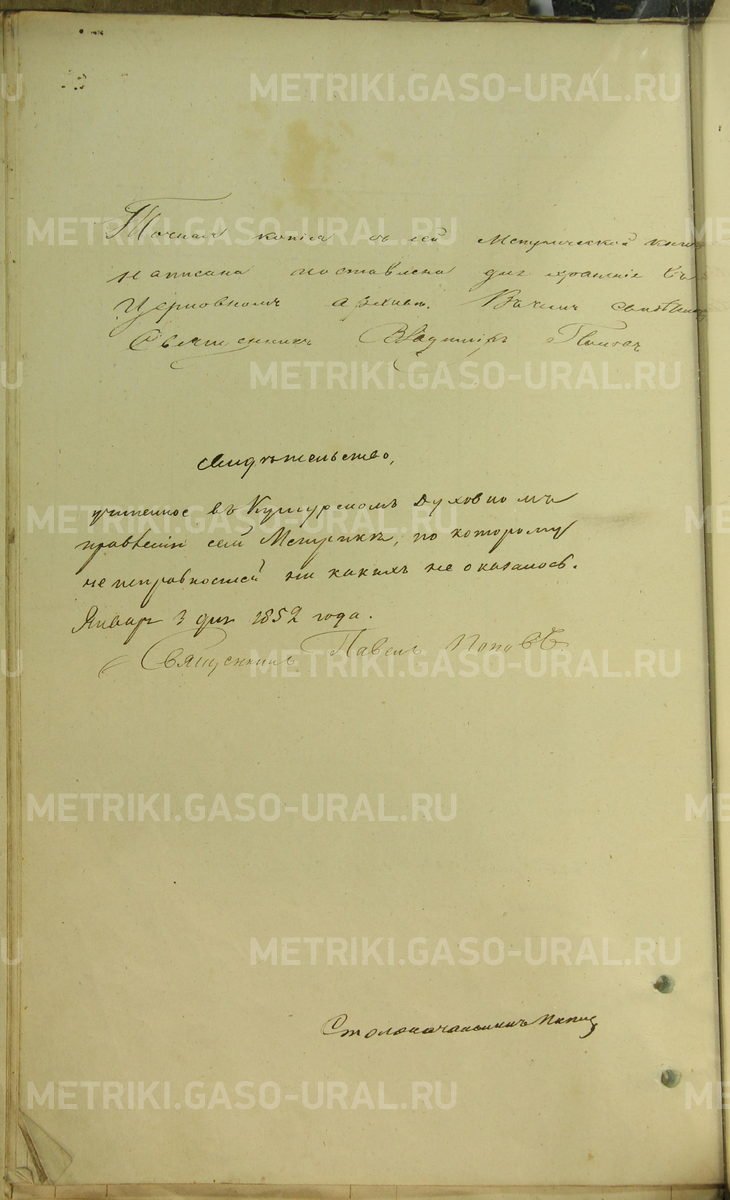 METRIKI.GASO-URAL.RU
Точная копія съ сей Метрической книги
написана поставлена для храненія въ
Церковномъ Архивѣ. Въ чемъ свидѣ
Священникъ Владиміръ
Свидѣтельство,
учиненное въ Кунгурскомъ Духовномъ
правленіи сей Метрики, по которому
неисправностей ни какихъ не оказалось.
Январ 3 дня 1852 года.
Священникъ Павелъ Поповъ
Столоначальникъ